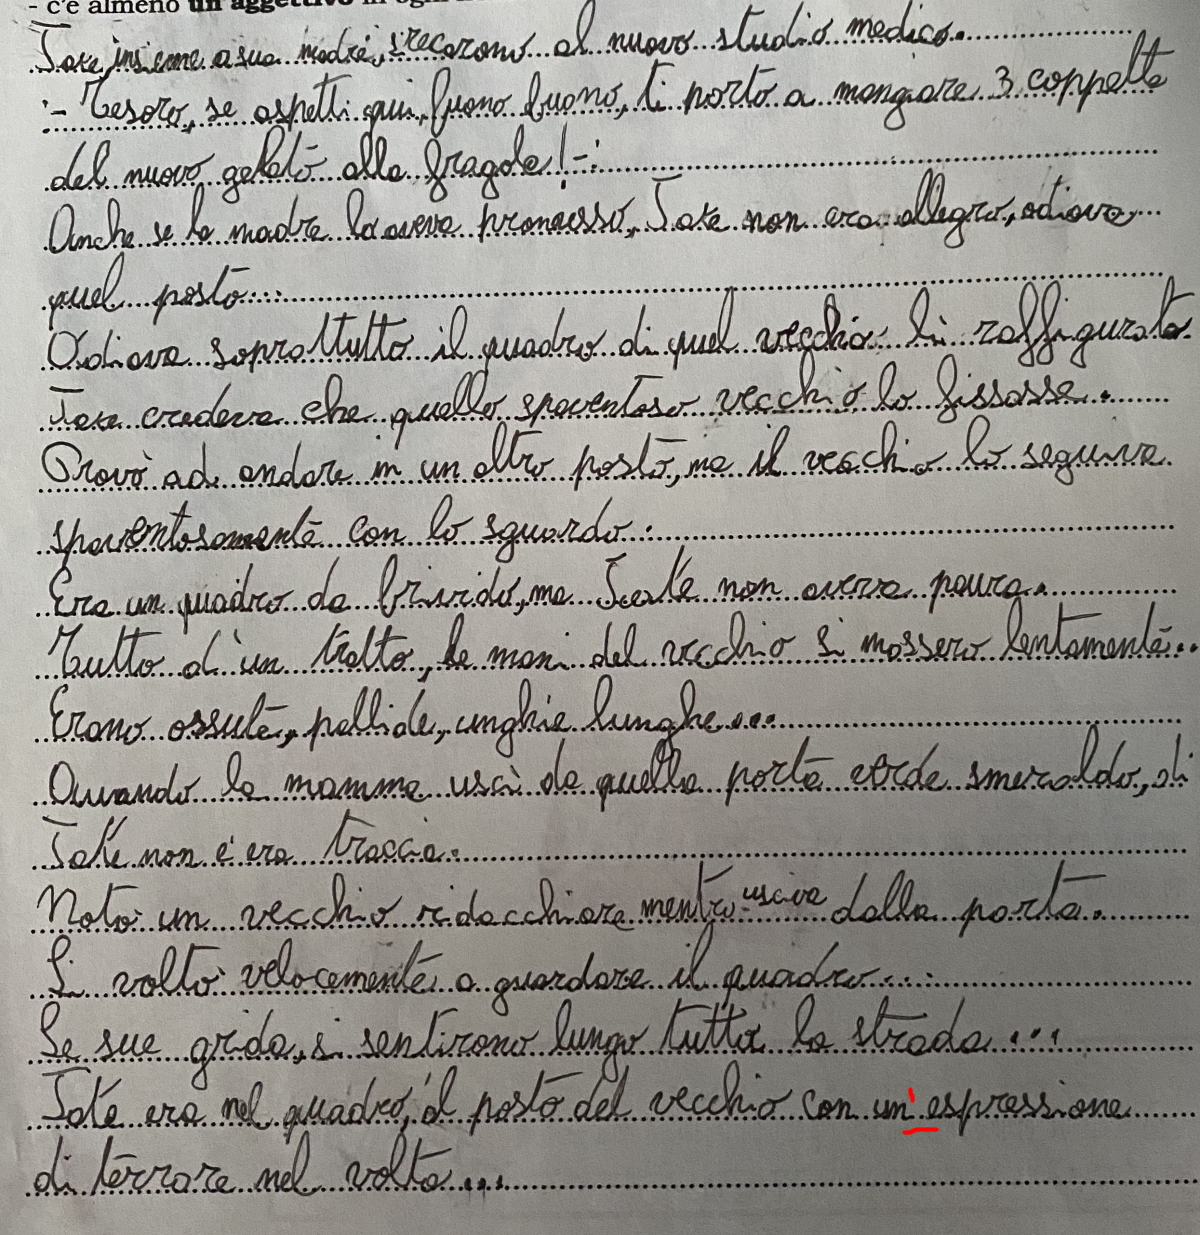 - c'è almeno un aggettivo in ogni
Jake, insieme a sua madre, si recarono al nuovo studio medico.
:- Tesoro, se aspetti qui, buono buono, ti porto a mangiare 3 coppette
del nuovo gelato alla fragola!-:
Anche se la madre lo aveva promesso, Jake non era allegro, odiava
quel posto...
Odiava soprattutto il quadro di quel vecchio lì raffigurato.
Jake credeva che quello spaventoso vecchio lo fissasse.
Provò ad andare in un altro posto, ma il vecchio lo seguiva
spaventosamente con lo sguardo.
Era un quadro da brivido, ma Jake non aveva paura.
Tutto d'un tratto, le mani del vecchio si mossero lentamente..
Erano ossute, pallide, unghie lunghe...
Quando la mamma uscì da quella porta verde smeraldo, di
Jake non c'era traccia.
Notò un vecchio ridacchiare mentre usciva dalla porta.
Si voltò velocemente a guardare il quadro...
Le sue grida, si sentirono lungo tutta la strada...
Jake era nel quadro, al posto del vecchio con un'espressione
di terrore nel volto...